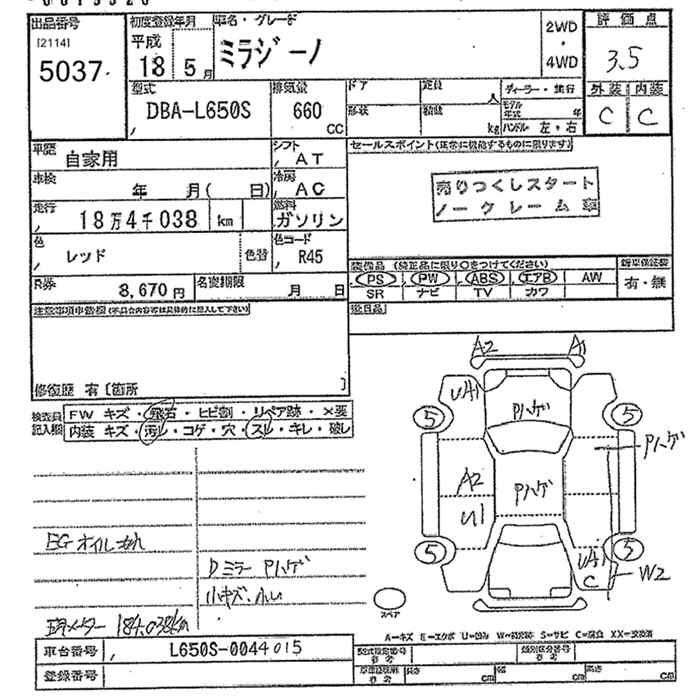 出品番号
[2114]
5037
初度登録年月
平成
18 5月
車名・グレード
ミラジーノ
2WD
・
4WD
評価点
3.5
外装 内装
C C
型式
DBA-L650S
排気量
660
CC
ドア
定員
人
形状
積載
kg
ディーラー・並行
モデル
年式 年
ハンドル 左・右
車歴
自家用
シフト
AT
車検
年 月( 日)
冷房
AC
走行
18万4千038 km
燃料
ガソリン
色
レッド
色替
色コード
R45
R券
8,670円
名変期限
月 日
セールスポイント(正常に機能するものに限ります)
売りつくしスタート
ノークレーム車
装備品(純正品に限り〇をつけてください)
新車保証書
PS PW ABS エアB AW
SR ナビ TV カワ
有・無
後日品
注意事項申告欄(不具合内容等は具体的に記入して下さい)
修復歴 有〔箇所 〕
検査員
記入欄
FW キズ・飛石・ヒビ割・リペア跡・×要
内装 キズ・汚レ・コゲ・穴・スレ・キレ・破レ
EGオイルもれ
Dミラー Pハゲ
小キズ・小凹
現メーター 184,038km
A2 A1
UA1
Pハゲ
5 5
Pハゲ
A2
U1
Pハゲ
5 5
UA1
C
W2
スペア
A=キズ E=エクボ U=凹み W=補修跡 S=サビ C=腐食 XX=交換済
車台番号
L650S-0044015
登録番号
型式指定番号
参考
類別区分番号
参考
参考
長さ cm
幅 cm
高さ cm